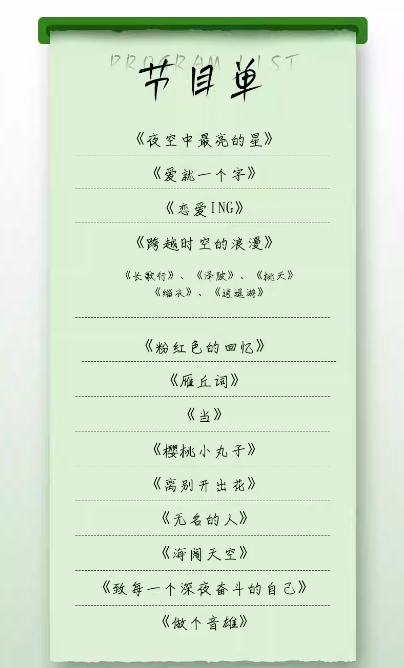 PROGRAM LIST
节目单
《夜空中最亮的星》
《爱就一个字》
《恋爱ING》
《跨越时空的浪漫》
《长歌行》、《泽陂》、《桃夭》
《缁衣》、《逍遥游》
《粉红色的回忆》
《雁丘词》
《当》
《樱桃小丸子》
《离别开出花》
《无名的人》
《海阔天空》
《致每一个深夜奋斗的自己》
《做个音雄》